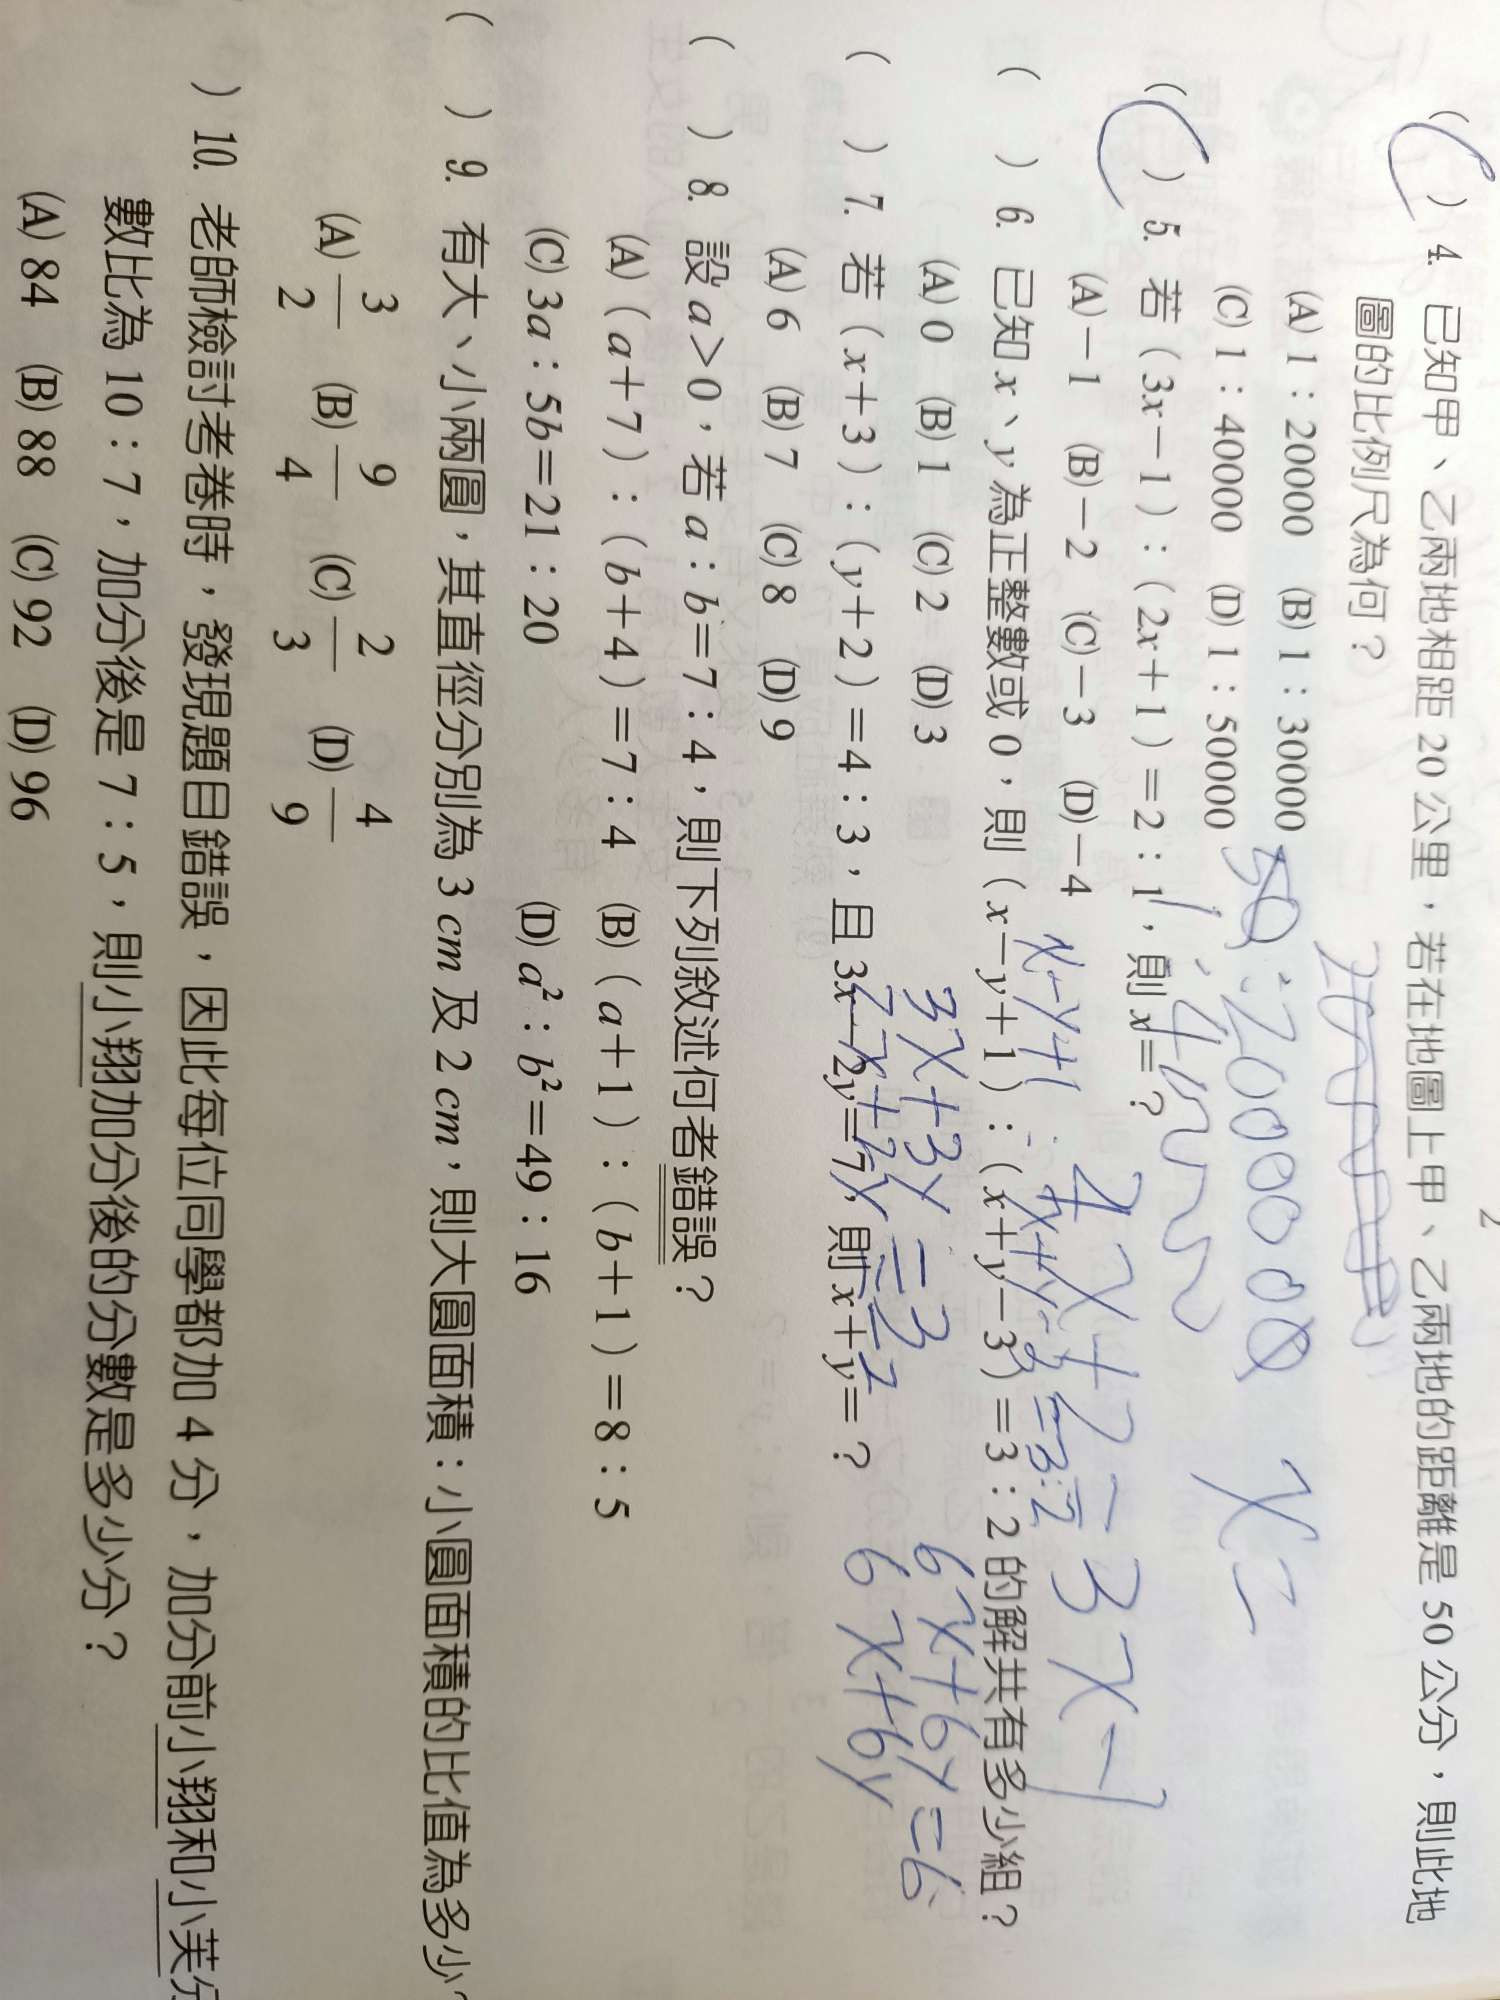 2
( C ) 4. 已知甲、乙兩地相距 20 公里，若在地圖上甲、乙兩地的距離是 50 公分，則此地
圖的比例尺為何？
(A) 1：20000 (B) 1：30000
(C) 1：40000 (D) 1：50000
50：2000000 x=
( C ) 5. 若（3x－1）：（2x＋1）＝2：1，則 x＝？
(A)－1 (B)－2 (C)－3 (D)－4
4x+2=3x-1
x-y+1：x+y-3=3：2
( ) 6. 已知 x、y 為正整數或 0，則（x－y＋1）：（x＋y－3）＝3：2 的解共有多少組？
(A) 0 (B) 1 (C) 2 (D) 3
3x+3y=3 6x+6y=6
( ) 7. 若（x＋3）：（y＋2）＝4：3，且 3x－2y＝7，則 x＋y＝？
6x+6y
(A) 6 (B) 7 (C) 8 (D) 9
( ) 8. 設 a＞0，若 a：b＝7：4，則下列敘述何者錯誤？
(A)（a＋7）：（b＋4）＝7：4 (B)（a＋1）：（b＋1）＝8：5
(C) 3a：5b＝21：20 (D) a²：b²＝49：16
( ) 9. 有大、小兩圓，其直徑分別為 3 cm 及 2 cm，則大圓面積：小圓面積的比值為多少？
(A) 3/2 (B) 9/4 (C) 2/3 (D) 4/9
( ) 10. 老師檢討考卷時，發現題目錯誤，因此每位同學都加 4 分，加分前小翔和小芙分
數比為 10：7，加分後是 7：5，則小翔加分後的分數是多少分？
(A) 84 (B) 88 (C) 92 (D) 96